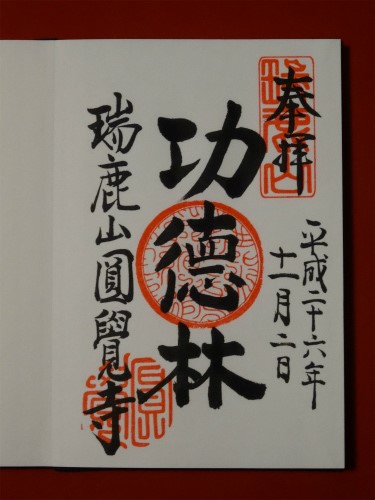 奉拝
平成二十六年
十一月二日
功德林
瑞鹿山圓覺寺